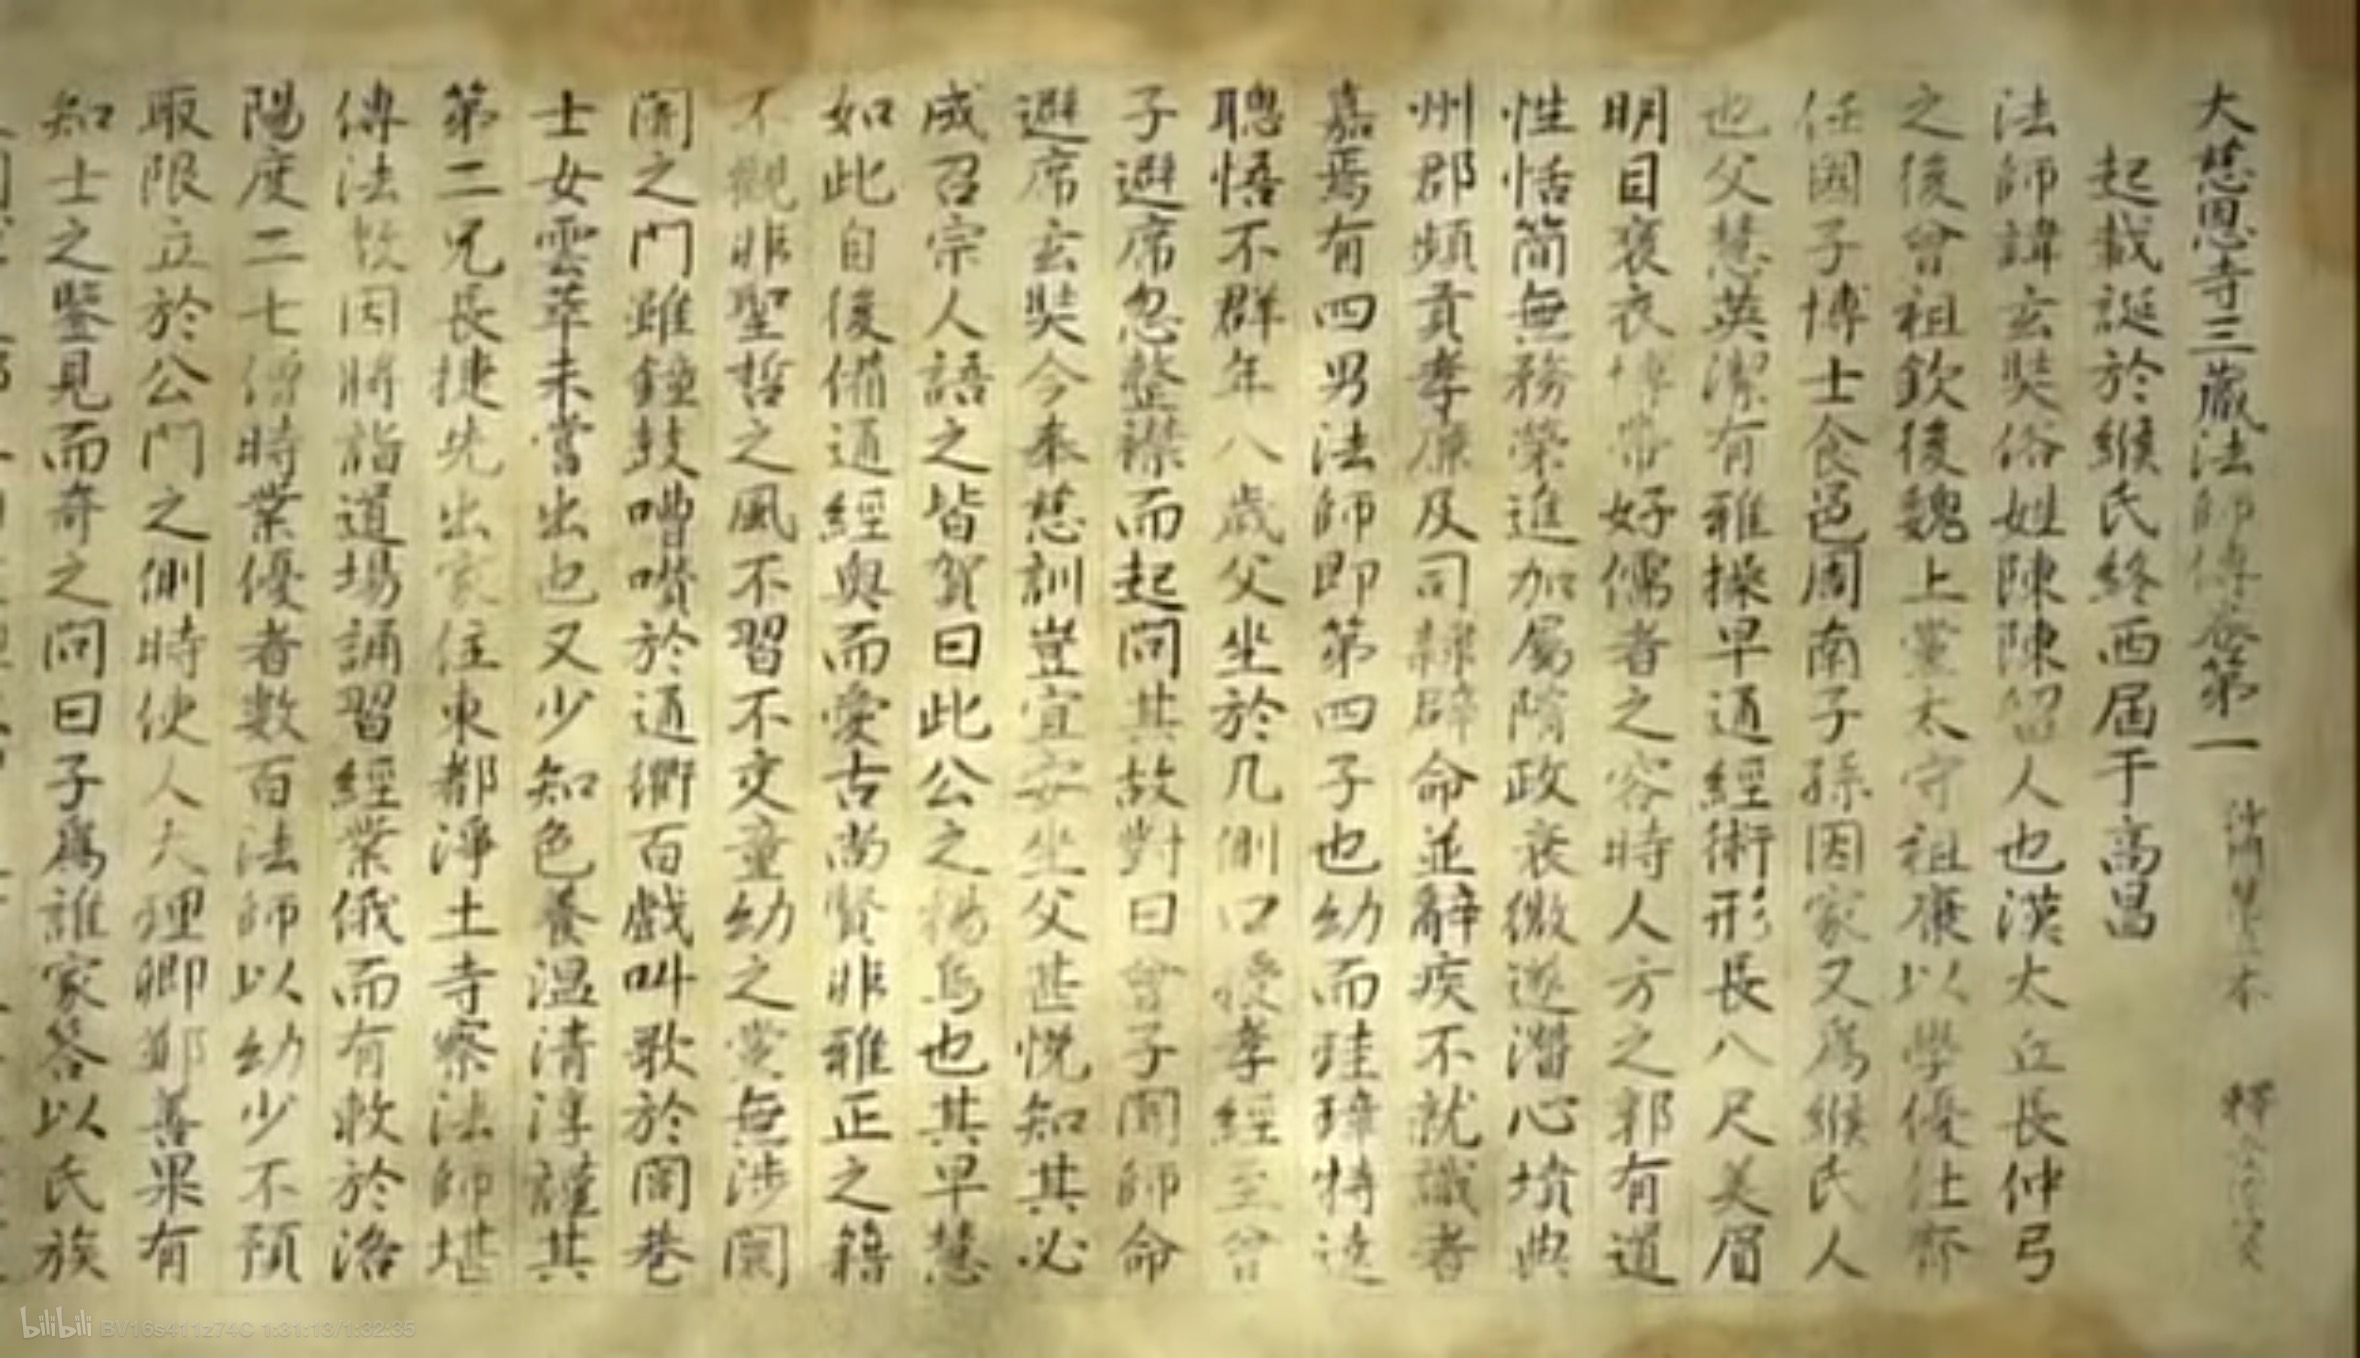 大慈恩寺三藏法師傳卷第一 沙門慧立本 釋
起載誕於緱氏終西屆于高昌
法師諱玄奘俗姓陳陳留人也漢太丘長仲弓
之後曾祖欽後魏上黨太守祖康以學優仕齊
任國子博士食邑周南子孫因家又爲緱氏人
也父慧英潔有雅操早通經術形長八尺美眉
明目褒衣博帶好儒者之容時人方之郭有道
性恬簡無務榮進加屬隋政衰微遂潛心墳典
州郡頻貢孝廉及司隸辟命並辭疾不就識者
嘉焉有四男法師即第四子也幼而珪璋特達
聰悟不群年八歲父坐於几側口授孝經至曾
子避席忽整襟而起問其故對曰曾子聞師命
避席玄奘今奉慈訓豈宜安坐父甚悅知其必
成召宗人語之皆賀曰此公之揚烏也其早慧
如此自後備通經奧而愛古尚賢非雅正之籍
不觀非聖哲之風不習不交童幼之黨無涉闤
闠之門雖鐘鼓嘈囋於通衢百戲叫歌於閭巷
士女雲萃未嘗出也又少知色養溫清淳謹其
第二兄長捷先出家住東都淨土寺察法師堪
傳法教因將詣道場誦習經業俄而有敕於洛
陽度二七僧時業優者數百法師以幼少不預
取限立於公門之側時使人大理卿鄭善果有
知士之鑒見而奇之問曰子爲誰家答以氏族
bilibili BV16s411z74C 1:31:13/1:32:35